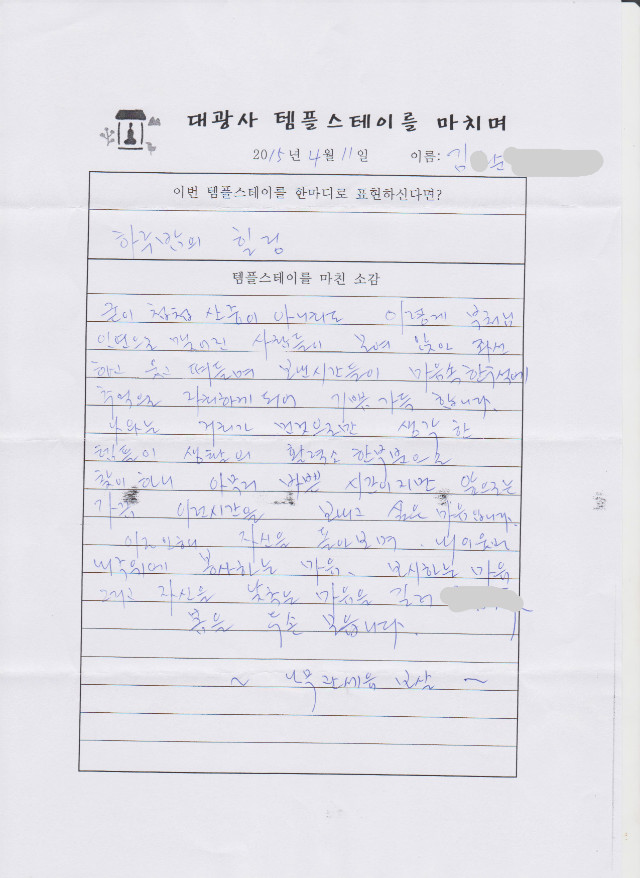 대광사 템플스테이를 마치며
2015년 4월 11일 이름: 김 순
이번 템플스테이를 한마디로 표현하신다면?
하루만의 힐링
템플스테이를 마친 소감
굳이 첩첩 산중이 아니라도 이렇게 부처님
인연으로 맺어진 사람들이 모여 앉아 좌선
하고 웃고 떠들며 보낸시간들이 마음속 한구석에
추억으로 자리하게 되어 기쁨 가득 합니다.
나와는 거리가 먼것으로만 생각 한
것들이 생활의 활력소 한몫법으로
찾이 하니 아무리 바쁜 시간이지만 앞으로는
가끔 이런시간을 보내고 싶은 마음입니다.
이로 인해 자신을 돌아보며. 내 이웃과
내주위에 봉사하는 마음. 보시하는 마음
그리고 자신을 낮추는 마음을 길러
복을 두손 모읍니다.
~ 나무관세음 보살 ~